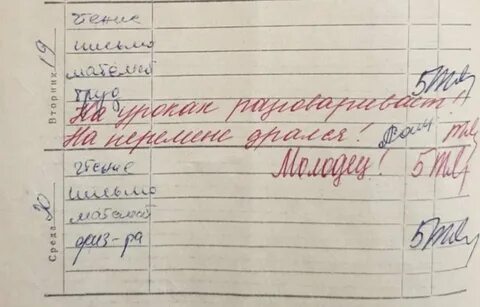 Вторник 19
чтение
письмо
математ
труд 5
На уроках разговаривает!
На перемене дрался!
Молодец! 5
Среда 20
чтение
письмо
математ
физ-ра 5